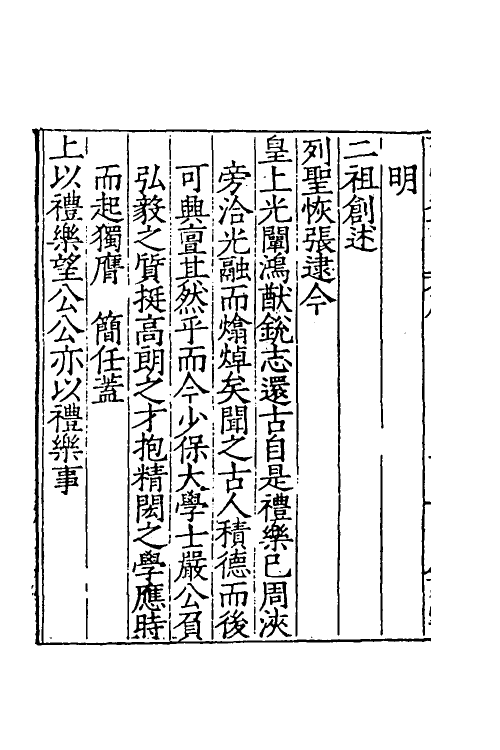 明
二祖創述
列聖恢張逮今
皇上光闡鴻猷銳志還古自是禮樂已周浹
旁洽光融而熻焯矣聞之古人積德而後
可興亶其然乎而今少保大學士嚴公負
弘毅之質挺高朗之才抱精閎之學應時
而起獨膺　簡任蓋
上以禮樂望公公亦以禮樂事